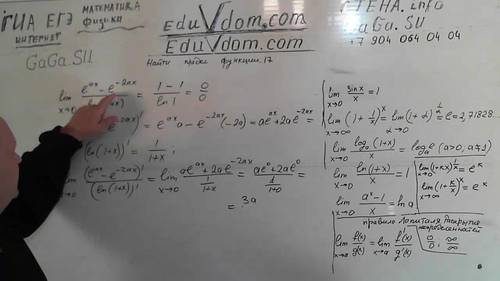 ГИА ЕГЭ МАТЕМАТИКА
ФИЗИКА
ИНТЕРНЕТ
GaGa.SU
EduVdom.com
EduVdom.com
Найти предел функции. 17
СТЕНА.info
GaGa.SU
+7 904 064 04 04
lim x→0 (e^{ax} - e^{-2ax}) / = (1-1)/ln1 = 0/0
= e^{ax}a - e^{-2ax}(-2a) = ae^{ax} + 2ae^{-2ax}
(ln(1+x))' = 1/(1+x) ;
lim (e^{ax} - e^{-2ax})' / (ln(1+x))' = lim x→0 (ae^{ax} + 2ae^{-2ax}) / (1/(1+x)) = (ae^0 + 2ae^0) / (1/(1+0)) =
= 3a
lim x→0 sinx/x = 1
lim x→∞ (1 + 1/x)^x = lim α→0 (1+α)^{1/α} = e = 2,71828..
lim x→0 log_a(1+x)/x = log_a e (a>0, a≠1)
lim x→0 ln(1+x)/x = 1
lim x→0 (1+kx)^{1/x} = e^k
lim x→∞ (1+k/x)^x = e^k
lim x→0 (a^x - 1)/x = ln a
правило Лопиталя. Раскрытие
неопределенностей
lim x→a f(x)/g(x) = lim x→a f'(x)/g'(x) 0/0, ∞/∞